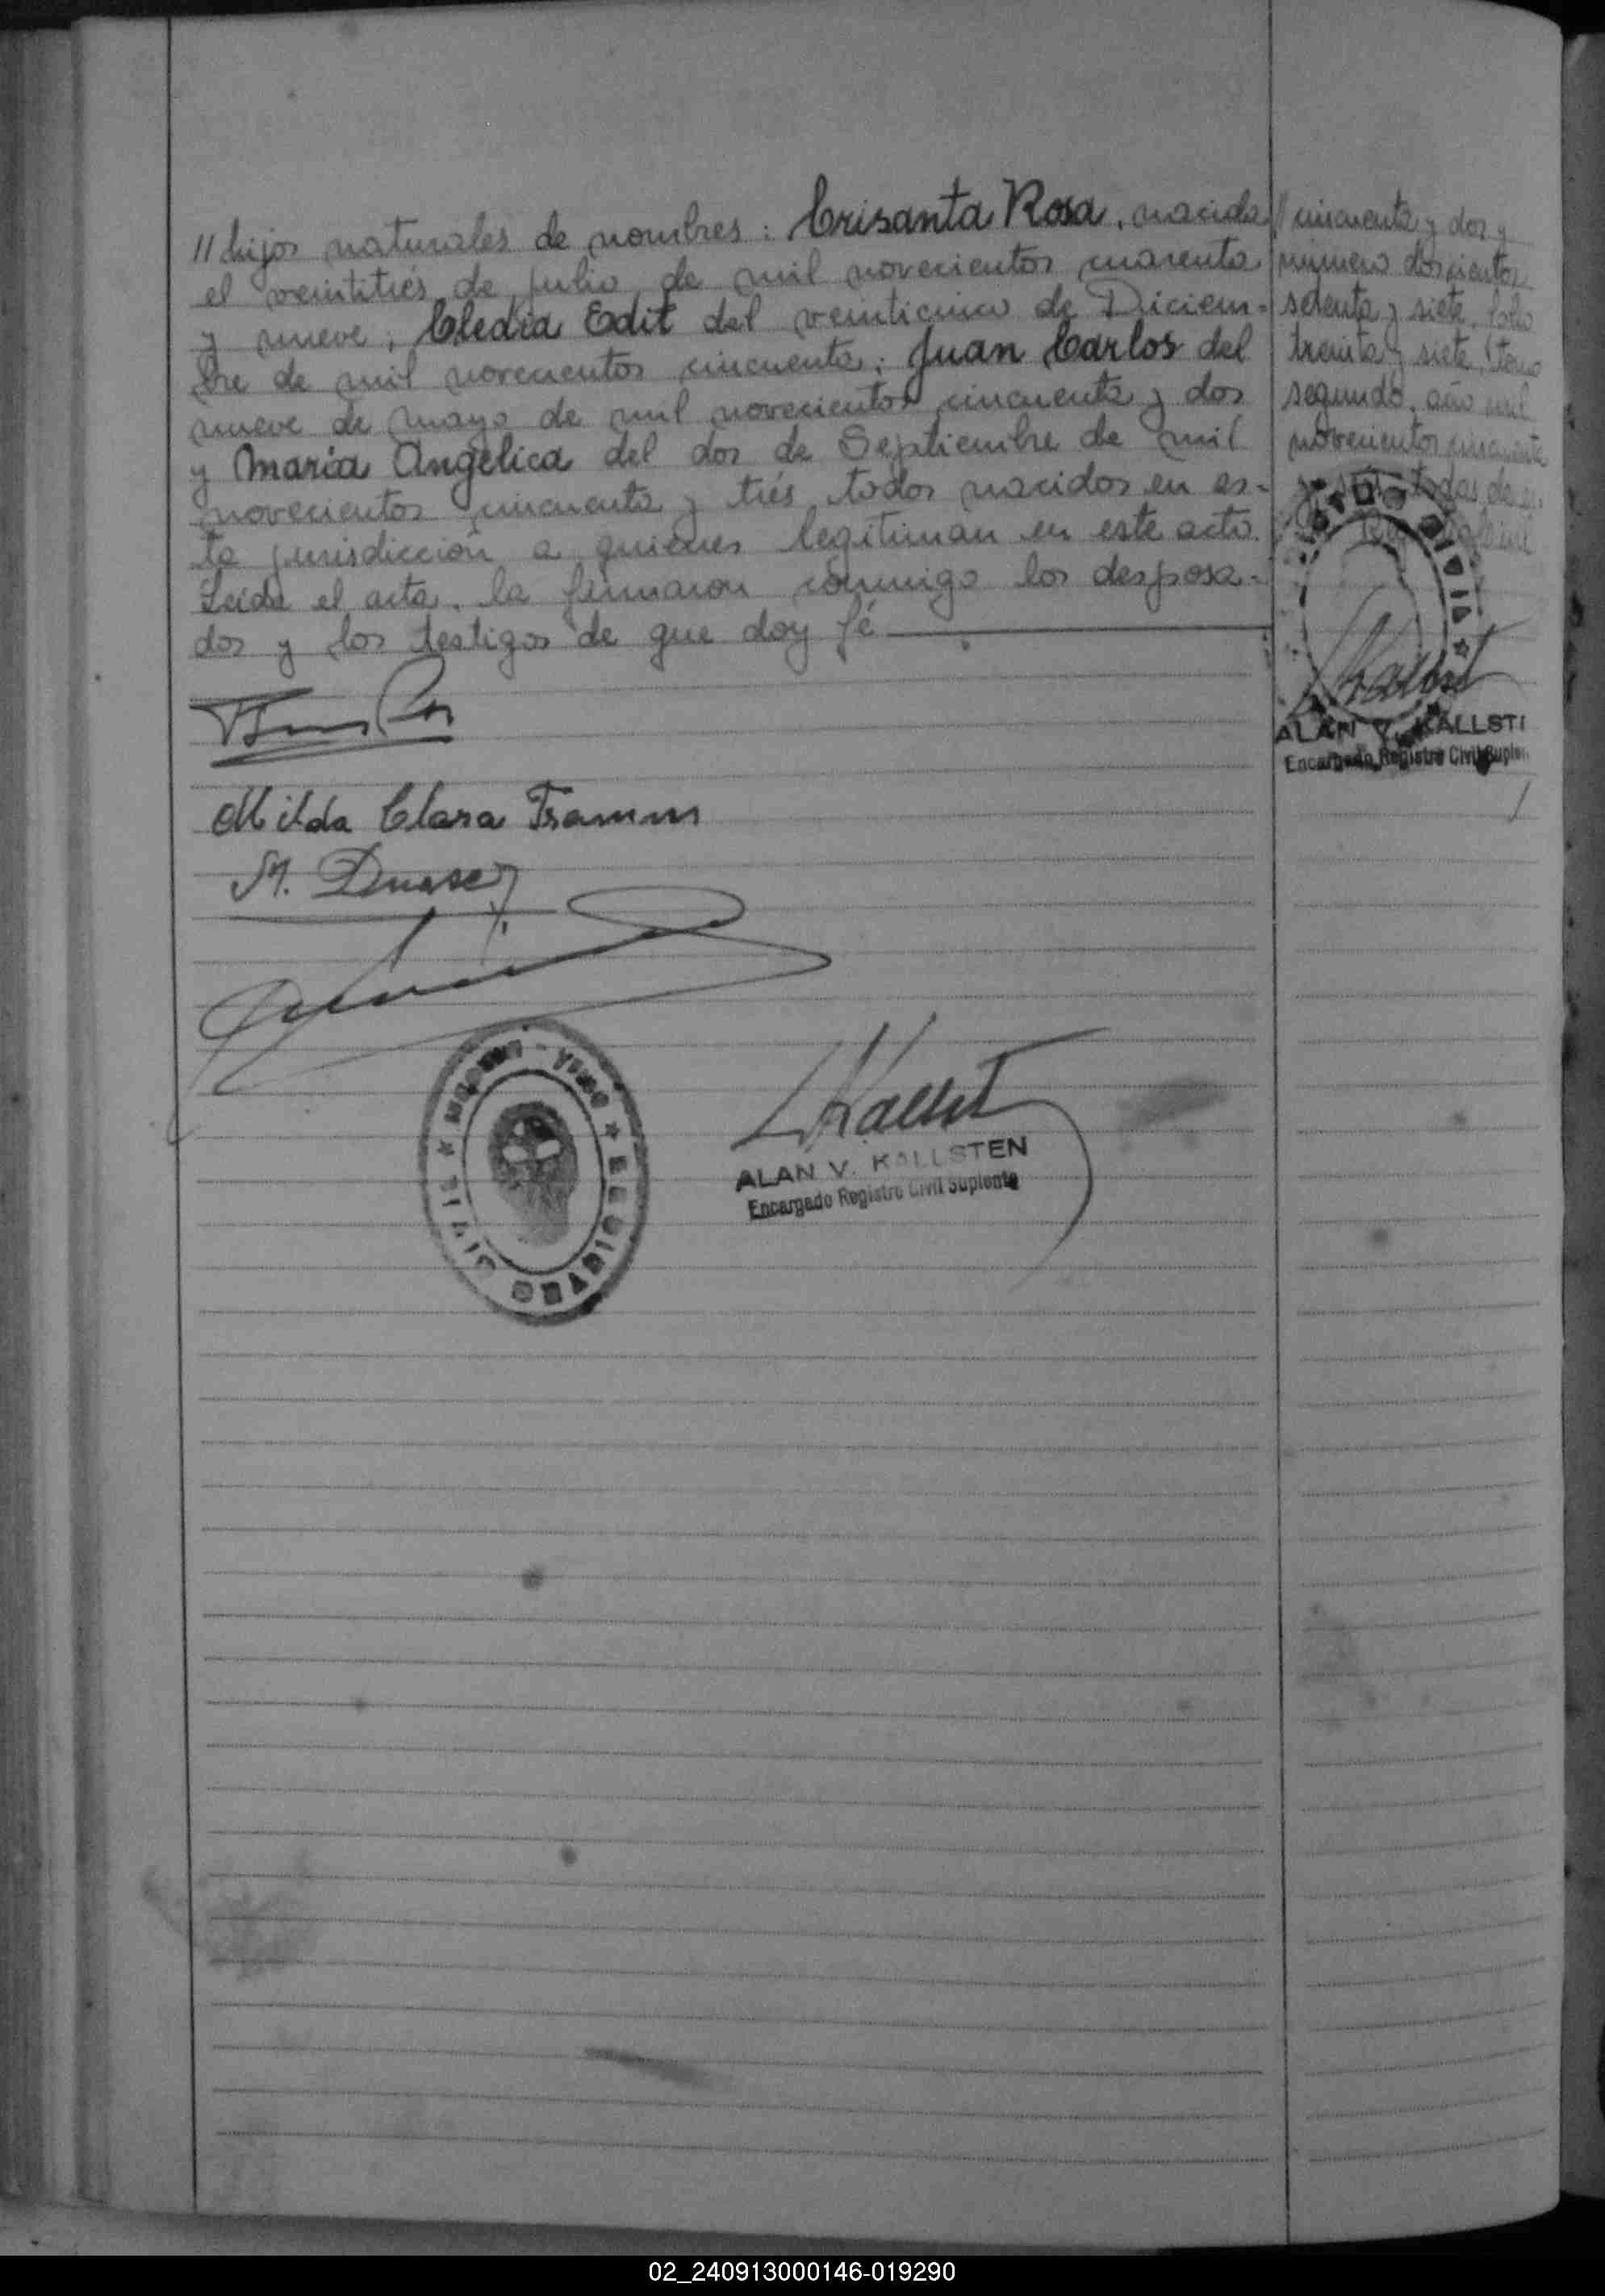 // hijos naturales de nombres: Crisanta Rosa, nacida
el veintitrés de julio de mil novecientos cuarenta
y nueve; Cledia Edit del veinticinco de Diciem-
bre de mil novecientos cincuenta; Juan Carlos del
nueve de mayo de mil novecientos cincuenta y dos
y María Angélica del dos de Septiembre de mil
novecientos cincuenta y trés todos nacidos en es-
ta jurisdicción a quienes legitiman en este acto.
Leída el acta, la firmaron conmigo los desposa-
dos y los testigos de que doy fé
Milda Clara Framm
ALAN V. KALLSTEN
Encargado Registro Civil Suplente
// cincuenta y dos y
número doscientos
setenta y siete, folio
treinta y siete, tomo
segundo, año mil
novecientos cincuenta
todas de
ALAN V. KALLSTE
Encargado Registro Civil Suplen
02_240913000146-019290